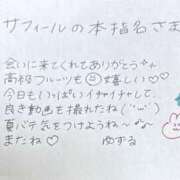 サフィールの本指名さま
会いに来てくれてありがとう
高級フルーツも嬉しい♡♡
今日もいっぱいイチャイチャして、
良き動画を撮れたね
夏バテ気をつけようね〜
またね♡ ゆずる